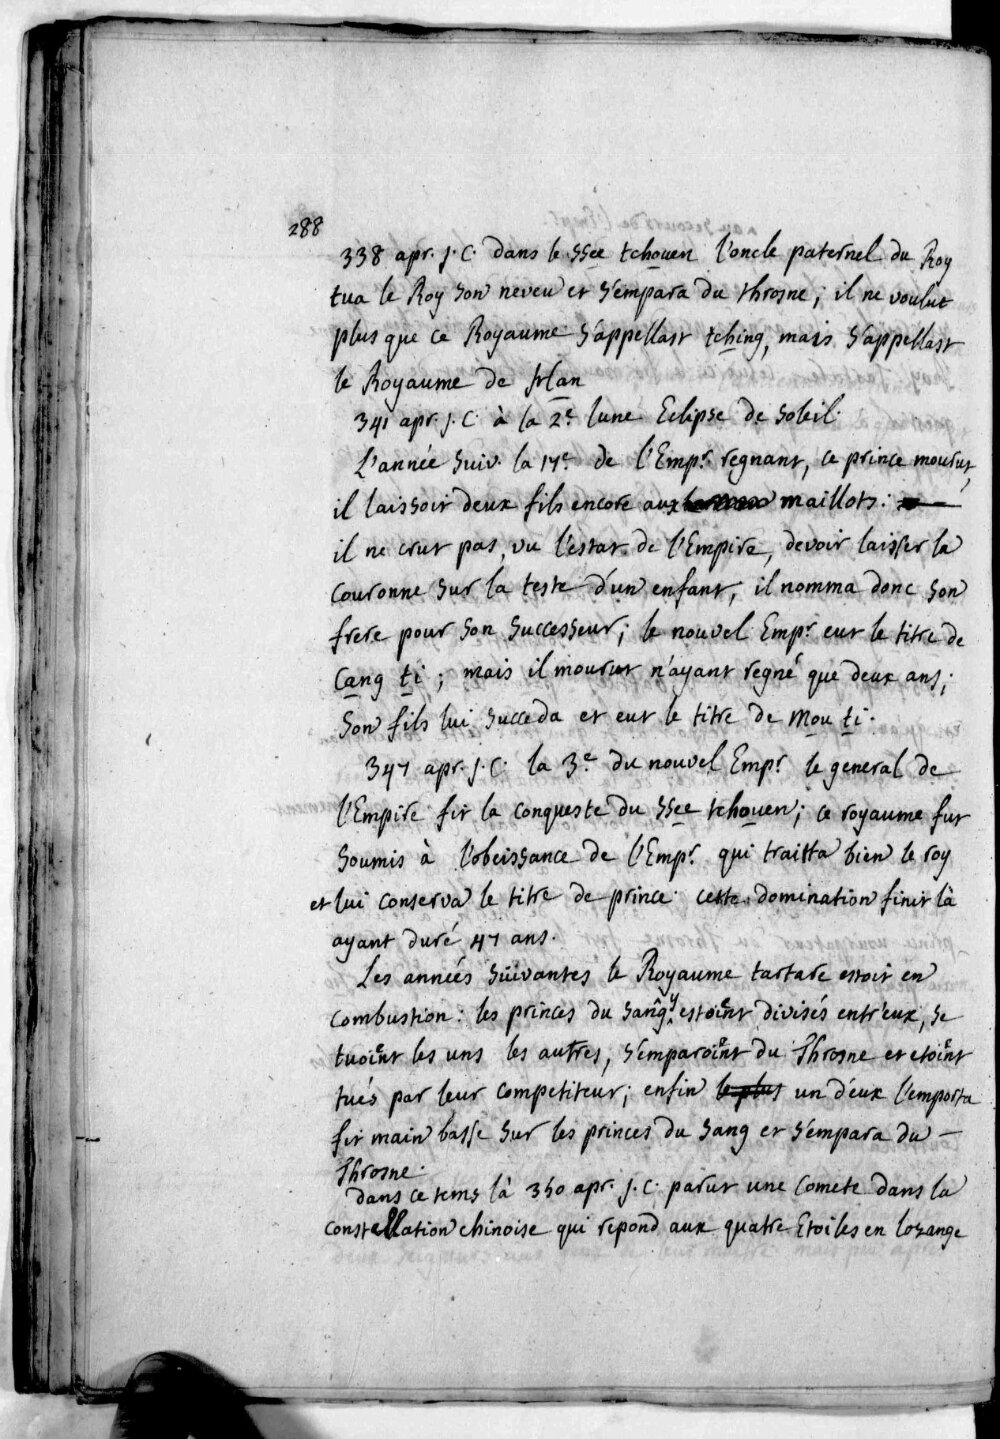 288
338 apr. J. C. dans le ssee tchouen l'oncle paternel du Roy
tua le Roy son neveu et s'empara du throsne; il ne voulut
plus que ce Royaume s'appellast tching, mais s'appellast
le Royaume de han
341 apr. J. C. à la 2e. lune Eclipse de soleil.
L'année suiv. la 17e. de l'Empr. regnant, ce prince mourut,
il laissoit deux fils encore aux maillots:
il ne crut pas, vu l'estat de l'Empire, devoir laisser la
couronne sur la teste d'un enfant, il nomma donc son
frere pour son successeur; le nouvel Empr. eut le titre de
Cang ti; mais il mourut n'ayant regné que deux ans;
son fils lui succeda et eut le titre de Mou ti.
347 apr. J. C. la 3e. du nouvel Empr. le general de
l'Empire fit la conqueste du ssee tchouen; ce royaume fut
soumis à l'obeissance de l'Empr. qui traitta bien le roy
et lui conserva le titre de prince. cette domination finit là
ayant duré 47 ans.
Les années suivantes le Royaume tartare estoit en
combustion: les princes du sang y estoint divisés entr'eux, se
tuoint les uns les autres, s'emparoint du Throsne et etoint
tués par leur competiteur; enfin le plus un d'eux l'emporta
fit main basse sur les princes du sang et s'empara du
Throsne.
dans ce tems là 350 apr. J. C. parut une Comete dans la
constellation chinoise qui repond aux quatre Etoiles en lozange